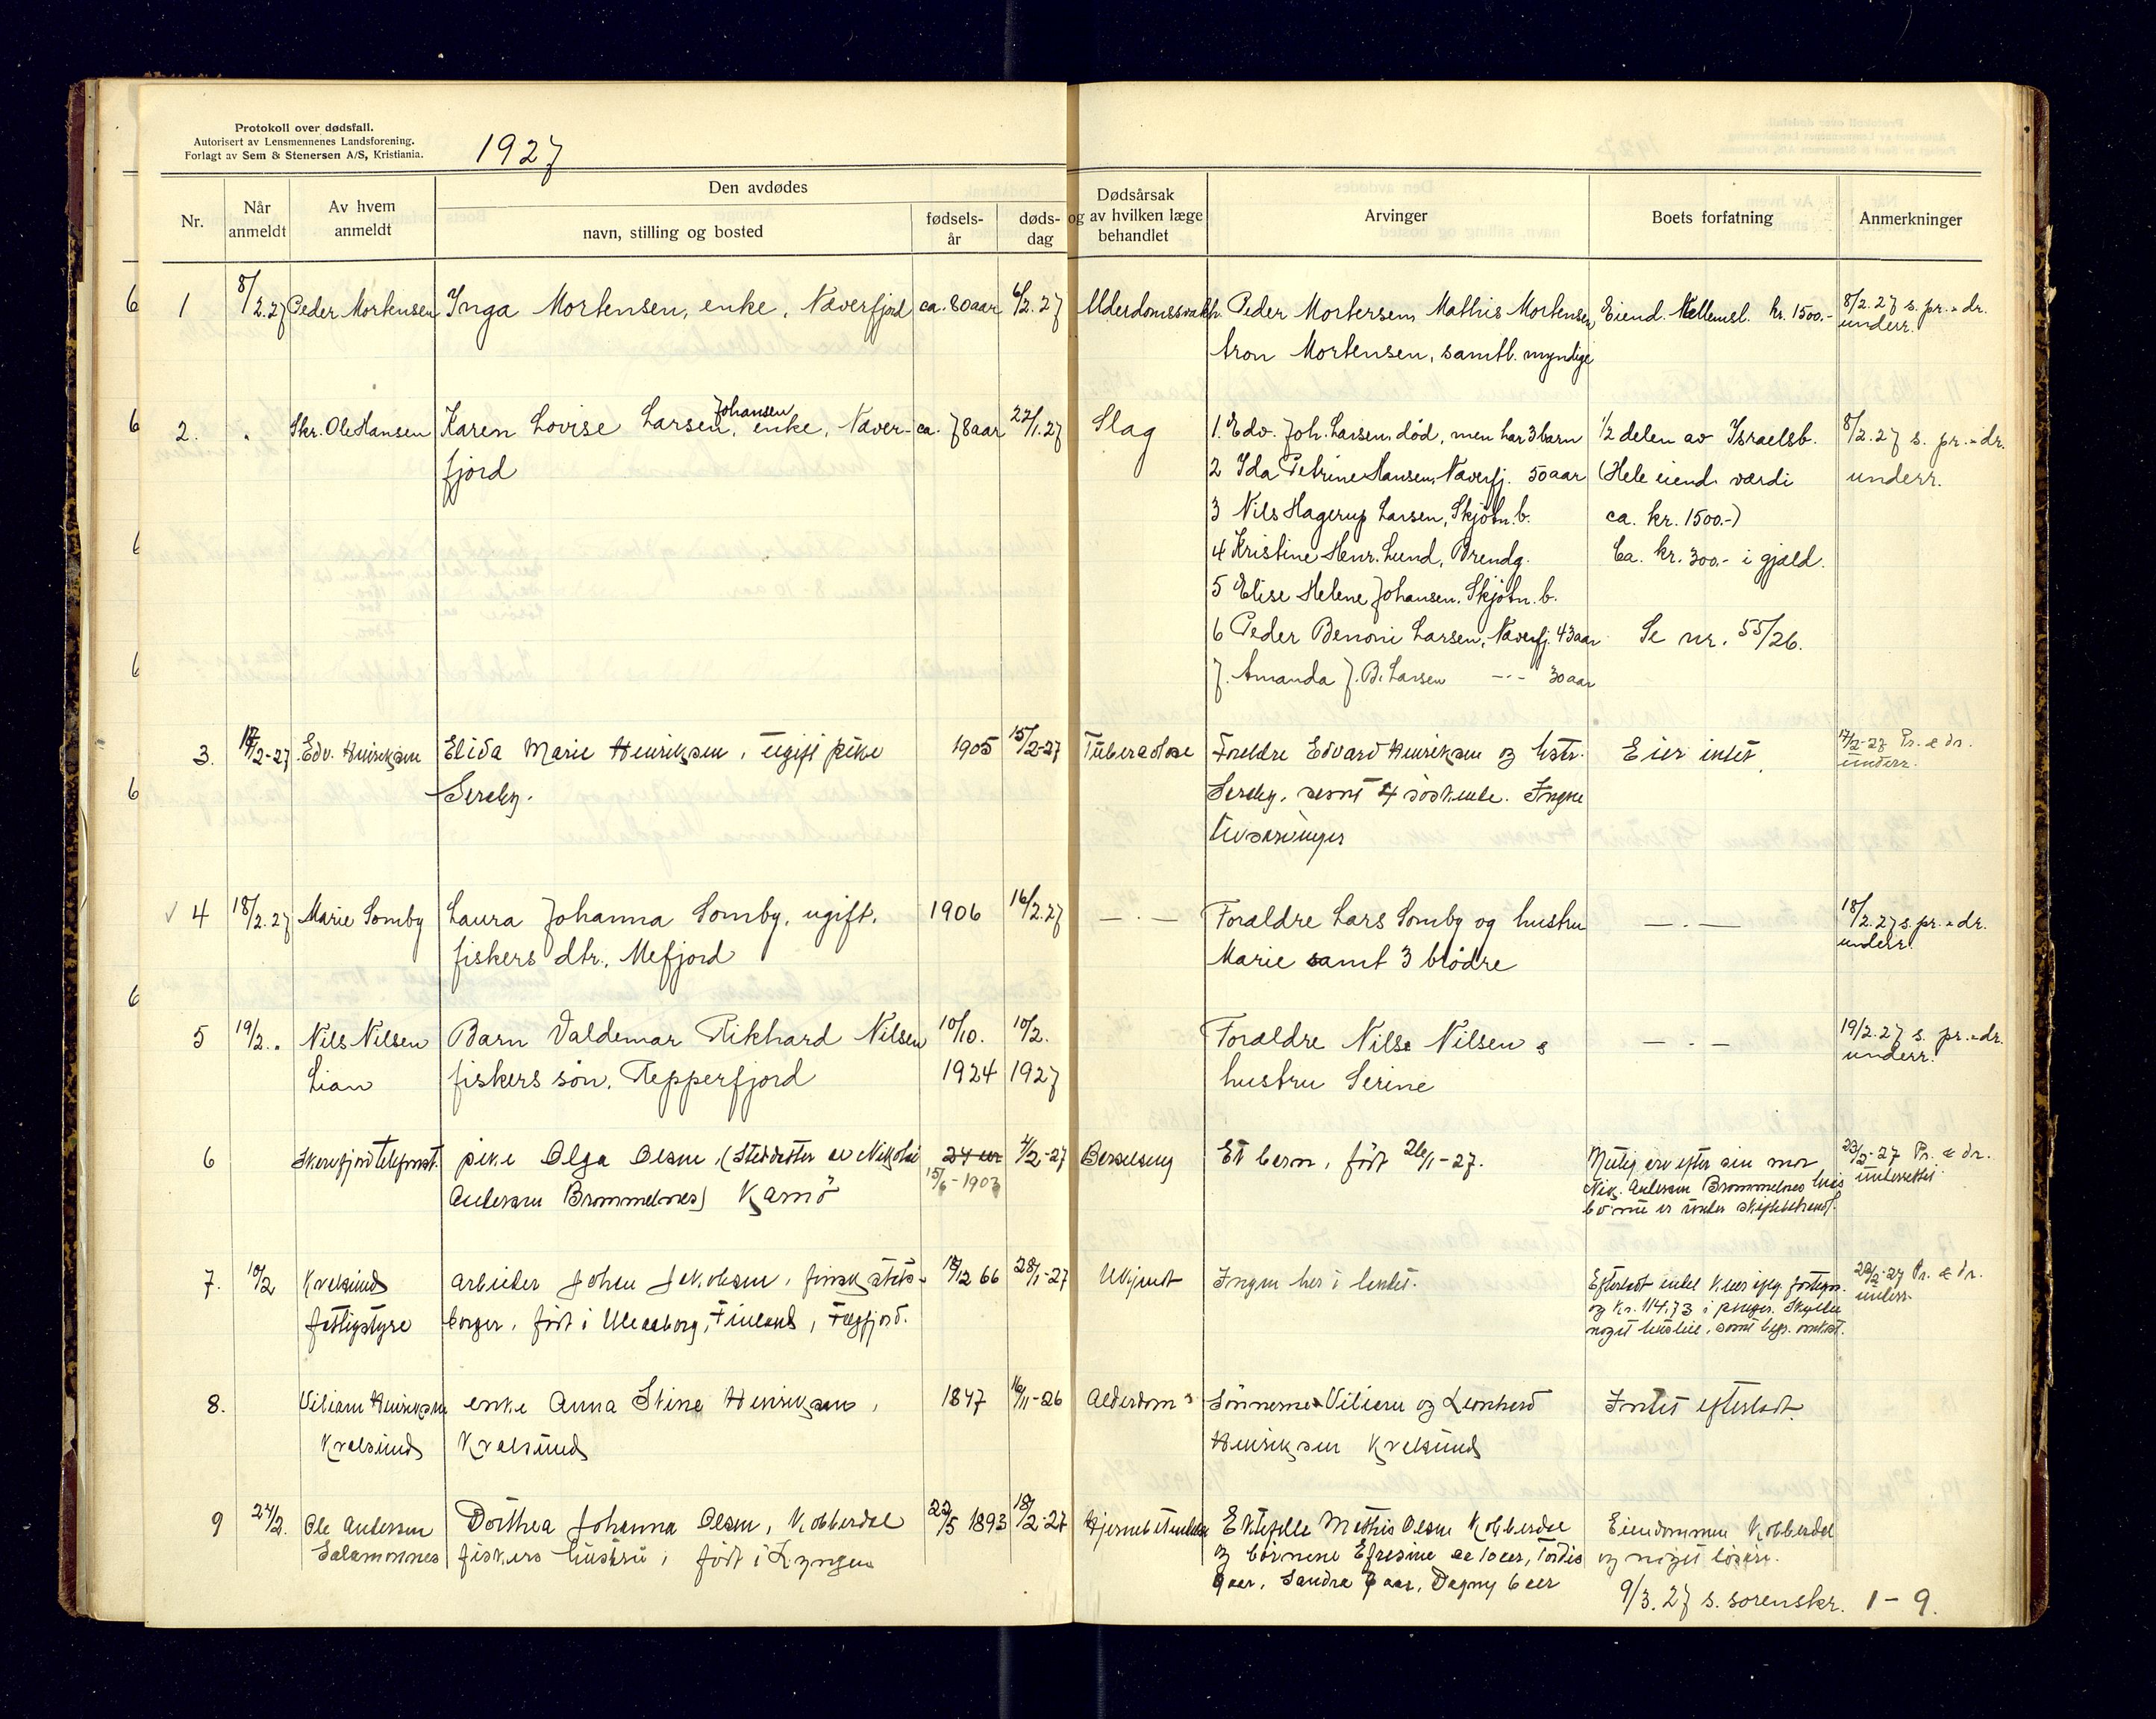 Protokoll over dødsfall.
Autorisert av Lensmennenes Landsforening.
Forlagt av Sem & Stenersen A/S, Kristiania.
1927
Nr.
Når anmeldt
Av hvem anmeldt
Den avdødes
navn, stilling og bosted
fødsels-år
døds-dag
Dødsårsak og av hvilken læge behandlet
Arvinger
Boets forfatning
Anmerkninger
1 8/2.27 Peder Mortensen Inga Mortensen, enke, Næverfjord ca. 80 aar 6/2.27 Peder Mortensen, Mathis Mortensen, Eiend. kr. 1500.- 8/2.27 s. pr. & dr.
Aron Mortensen, samtl. myndige underr.
2. " Skr. Ole Hansen Karen Lovise Larsen, Johansen enke, Næver- ca. 78 aar 27/1.27 Slag 1. Edv. Joh. Larsen, død, men har 3 barn 1/2 delen av Israelsb. 8/2.27 s. pr. & dr.
fjord 2 Ida Petrine Hansen, Næverfj. 50 aar (Hele eiend. værdi underr.
3 Nils Hagerup Larsen, Skjötn.b. ca. kr. 1500.-)
4 Kristine Henr. Lund, Brendg. Ca. kr. 300.- i gjæld.
5 Elise Helene Johansen, Skjötn.b.
6 Peder Benoni Larsen, Næverfj. 43 aar Se nr. 55/26.
7. Amanda J. B. Larsen -"- 30 aar
3. 17/2-27 Edv. Henriksen Elida Marie Henriksen, ugift pike 1905 15/2-27 Tuberculose Foreldre Edvard Henriksen og hstr. Eier intet. 17/2-27 Pr. & dr.
Sereby, samt 4 söskende. Ingen underr.
livsarvinger
4 18/2.27 Marie Somby Laura Johanna Somby, ugift. 1906 16/2.27 — " — Forældre Lars Somby og hustru — " — 18/2.27 s. pr. & dr.
fiskers dtr., Mefjord Marie samt 3 brödre underr.
5 19/2. " Nils Nilsen Barn Valdemar Rikhard Nilsen 10/10. 10/2. Forældre Nils Nilsen & — " — 19/2.27 s. pr. & dr.
Lian fiskers sön, Repperfjord 1924 1927 hustru Serine underr.
6 pike Olga Olsen, (Steddatter av Nikolai 24 aar 4/2-27 Barselseng Et barn, födt 26/1-27. Mulig arv efter sin mor 23/2-27 Pr. & dr.
Andersen Brommelnes) Kamö 15/6-1903 Nik. Andersen Brommelnes hvis underrettet.
bo nu er under skiftebehandl.
7. 10/2 Kvalsund arbeider Johan Jakobsen, finsk stats- 18/12 66 28/1-27 Ukjendt Ingen her i landet. Efterlodt endel klær iflg. fortegn. 23/2-27 Pr. & dr.
fattigstyre borger, födt i Uleaborg, Finland, Fægfjord. og kr. 114,73 i penger. Skylder underr.
noget husleie, samt begr. omkost.
8. Viliam Henriksen enke Anna Stine Henriksen, 1847 16/11-26 Alderdom Sönnerne Viliam og Leonhard Intet efterlodt.
Kvalsund Kvalsund Henriksen Kvalsund
9 24/2. Ole Andersen Dorthea Johanna Olsen, Kobberdal 22/5 1893 18/2-27 Ektefelle Mathis Olsen Kobberdal Eiendommen Kobberdal
Salamonnes fiskers hustru, födt i Lyngen og börnene Efresine 10 aar, Tordis og noget lösöre.
9 aar, Sandra 7 aar, Dagny 6 aar
9/3.27 s. sorenskr. 1 - 9.